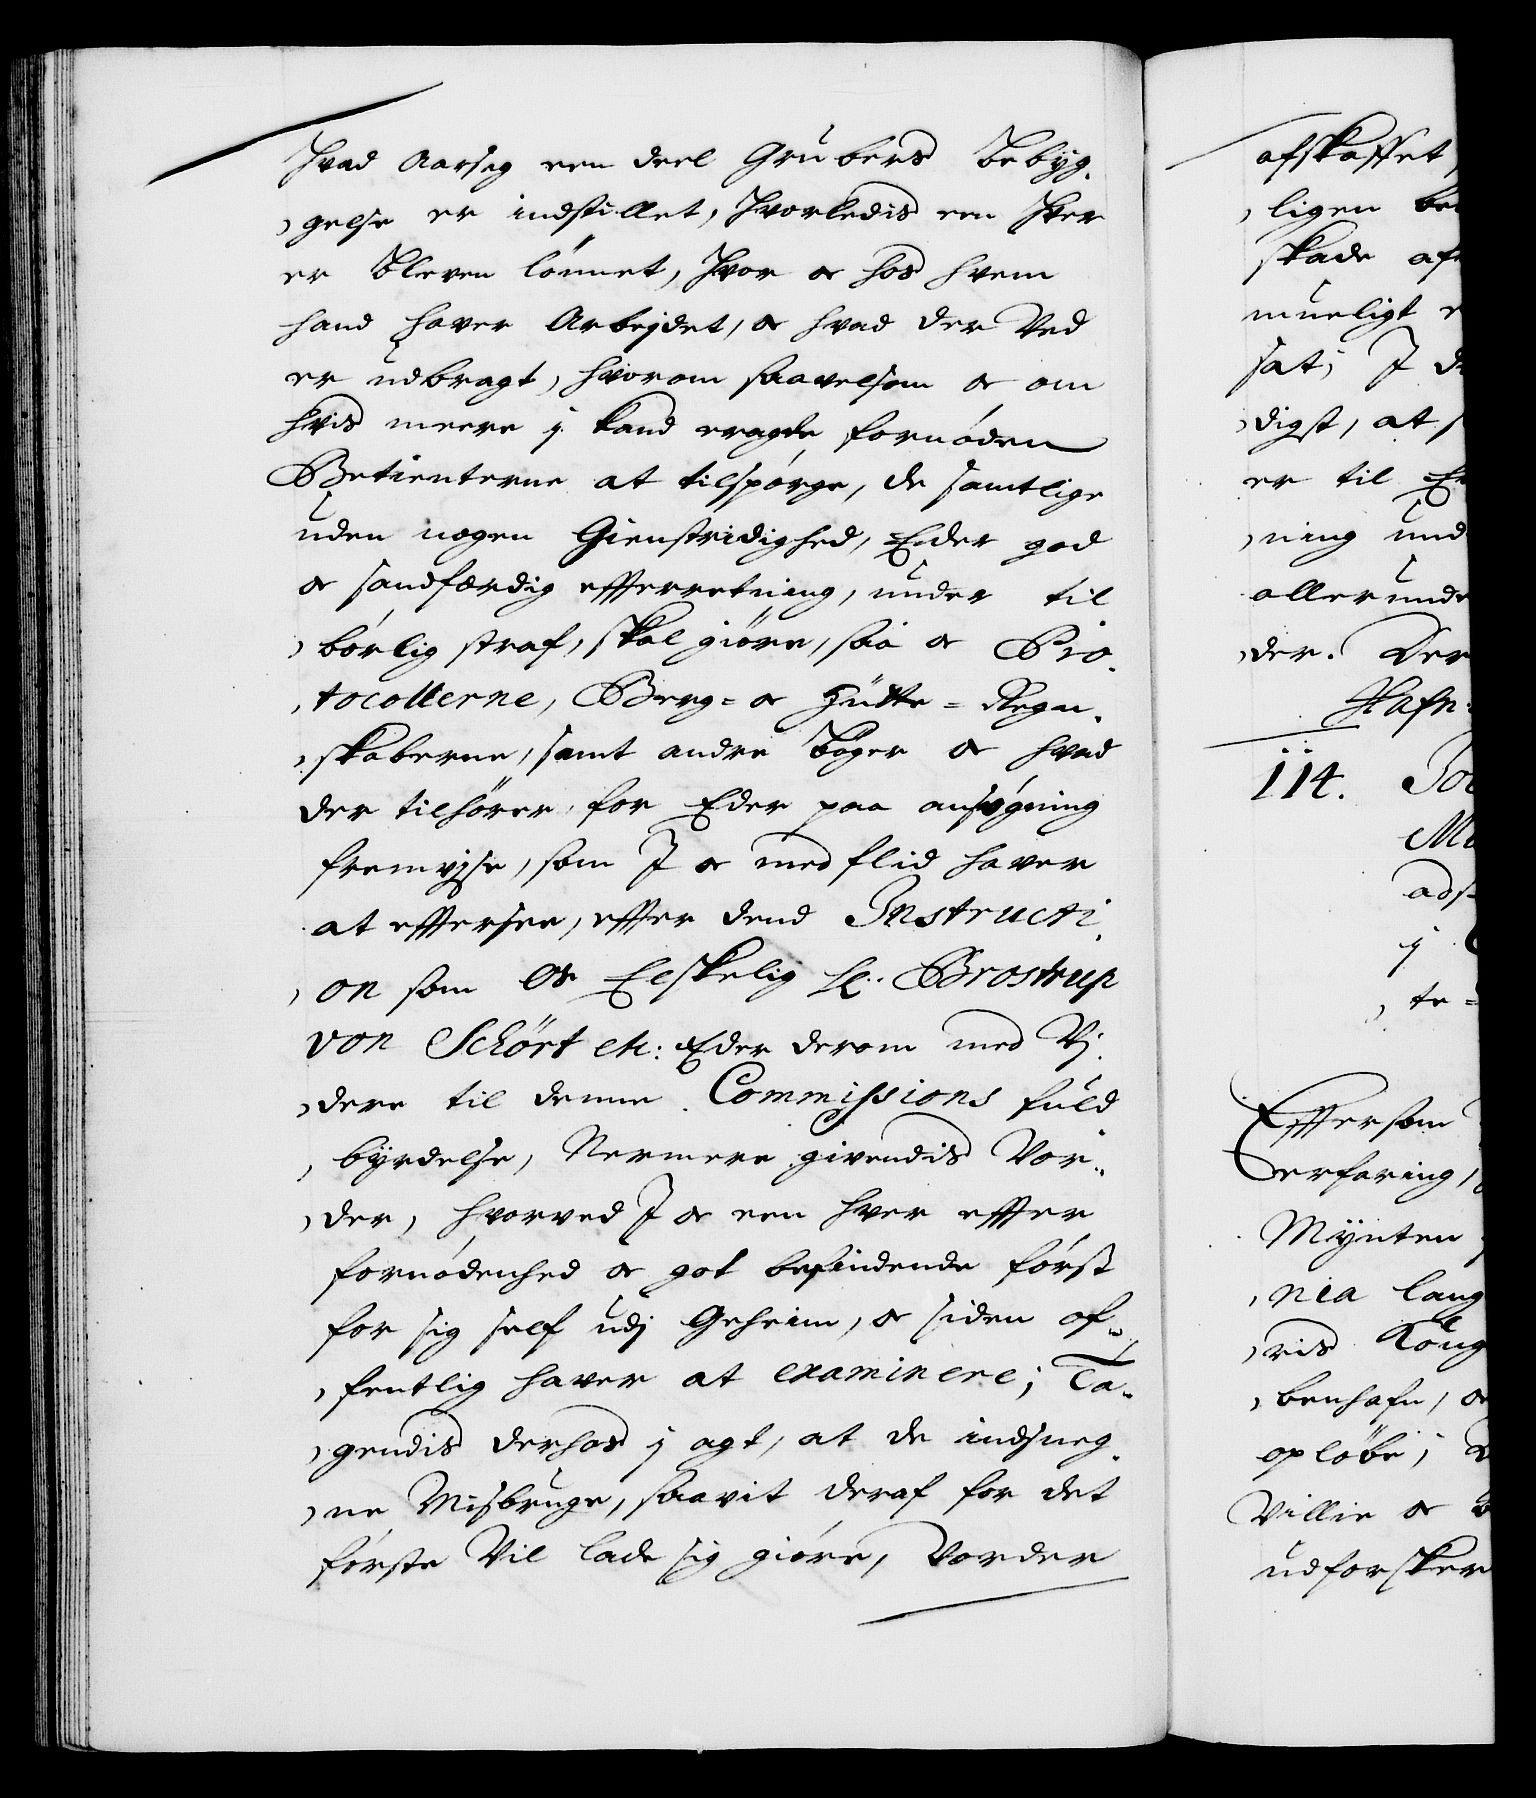 Hvad Aarsag een deel Grubers Bebÿg¸
¸gelse er indstillet, Hvorledis een Hver
er Bleven lönnet, Hvor oc hos hvem
hand haver Arbejdet, oc hvad der Ved
er udbragt, hvorom saavelsom oc om
hvis meere j kand eragte fornöden
Betienterne at tilspörge, de samtlige
uden nogen Gienstridighed, Eder god
oc sandfærdig effterretning, under til
¸börlig straf, skal giöre, saa oc Pro¸
¸tocollerne, Berg= oc Hütte=Regn¸
¸skaberne, samt andre Böger oc hvad
der tilhörer, for Eder paa ansögning
fremvjse, som I oc med flid haver
at efftersee, effter dend Instructi¸
¸on som Os Elskelig Hr: Brostrup
von Schört etc: Eder derom med Vj¸
¸dere til denne Commissions fuld
¸bÿrdelse, Nermere givendis Vor¸
¸der, hvorved I oc een hver effter
fornödenhed oc got befindende först
for sig self udj Geheim, oc siden of¸
¸fentlig haver at examinere; Ta¸
¸gendis derhos j agt, at de indsneg¸
¸ne Misbruge, saavit deraf for det
förste Vil lade sig giöre, Vorder
afskaffet,
¸ligen
skade
mueligt
sat; I
¸digst, at
er til
¸ning und
allerunde
¸der.
Hafn:
114.
j
¸te=
Efftersom
erfaring,
Mÿnten
¸nia lang
¸ris Kong
¸benhafn, oc
opløbe;
Villie oc
udforsker